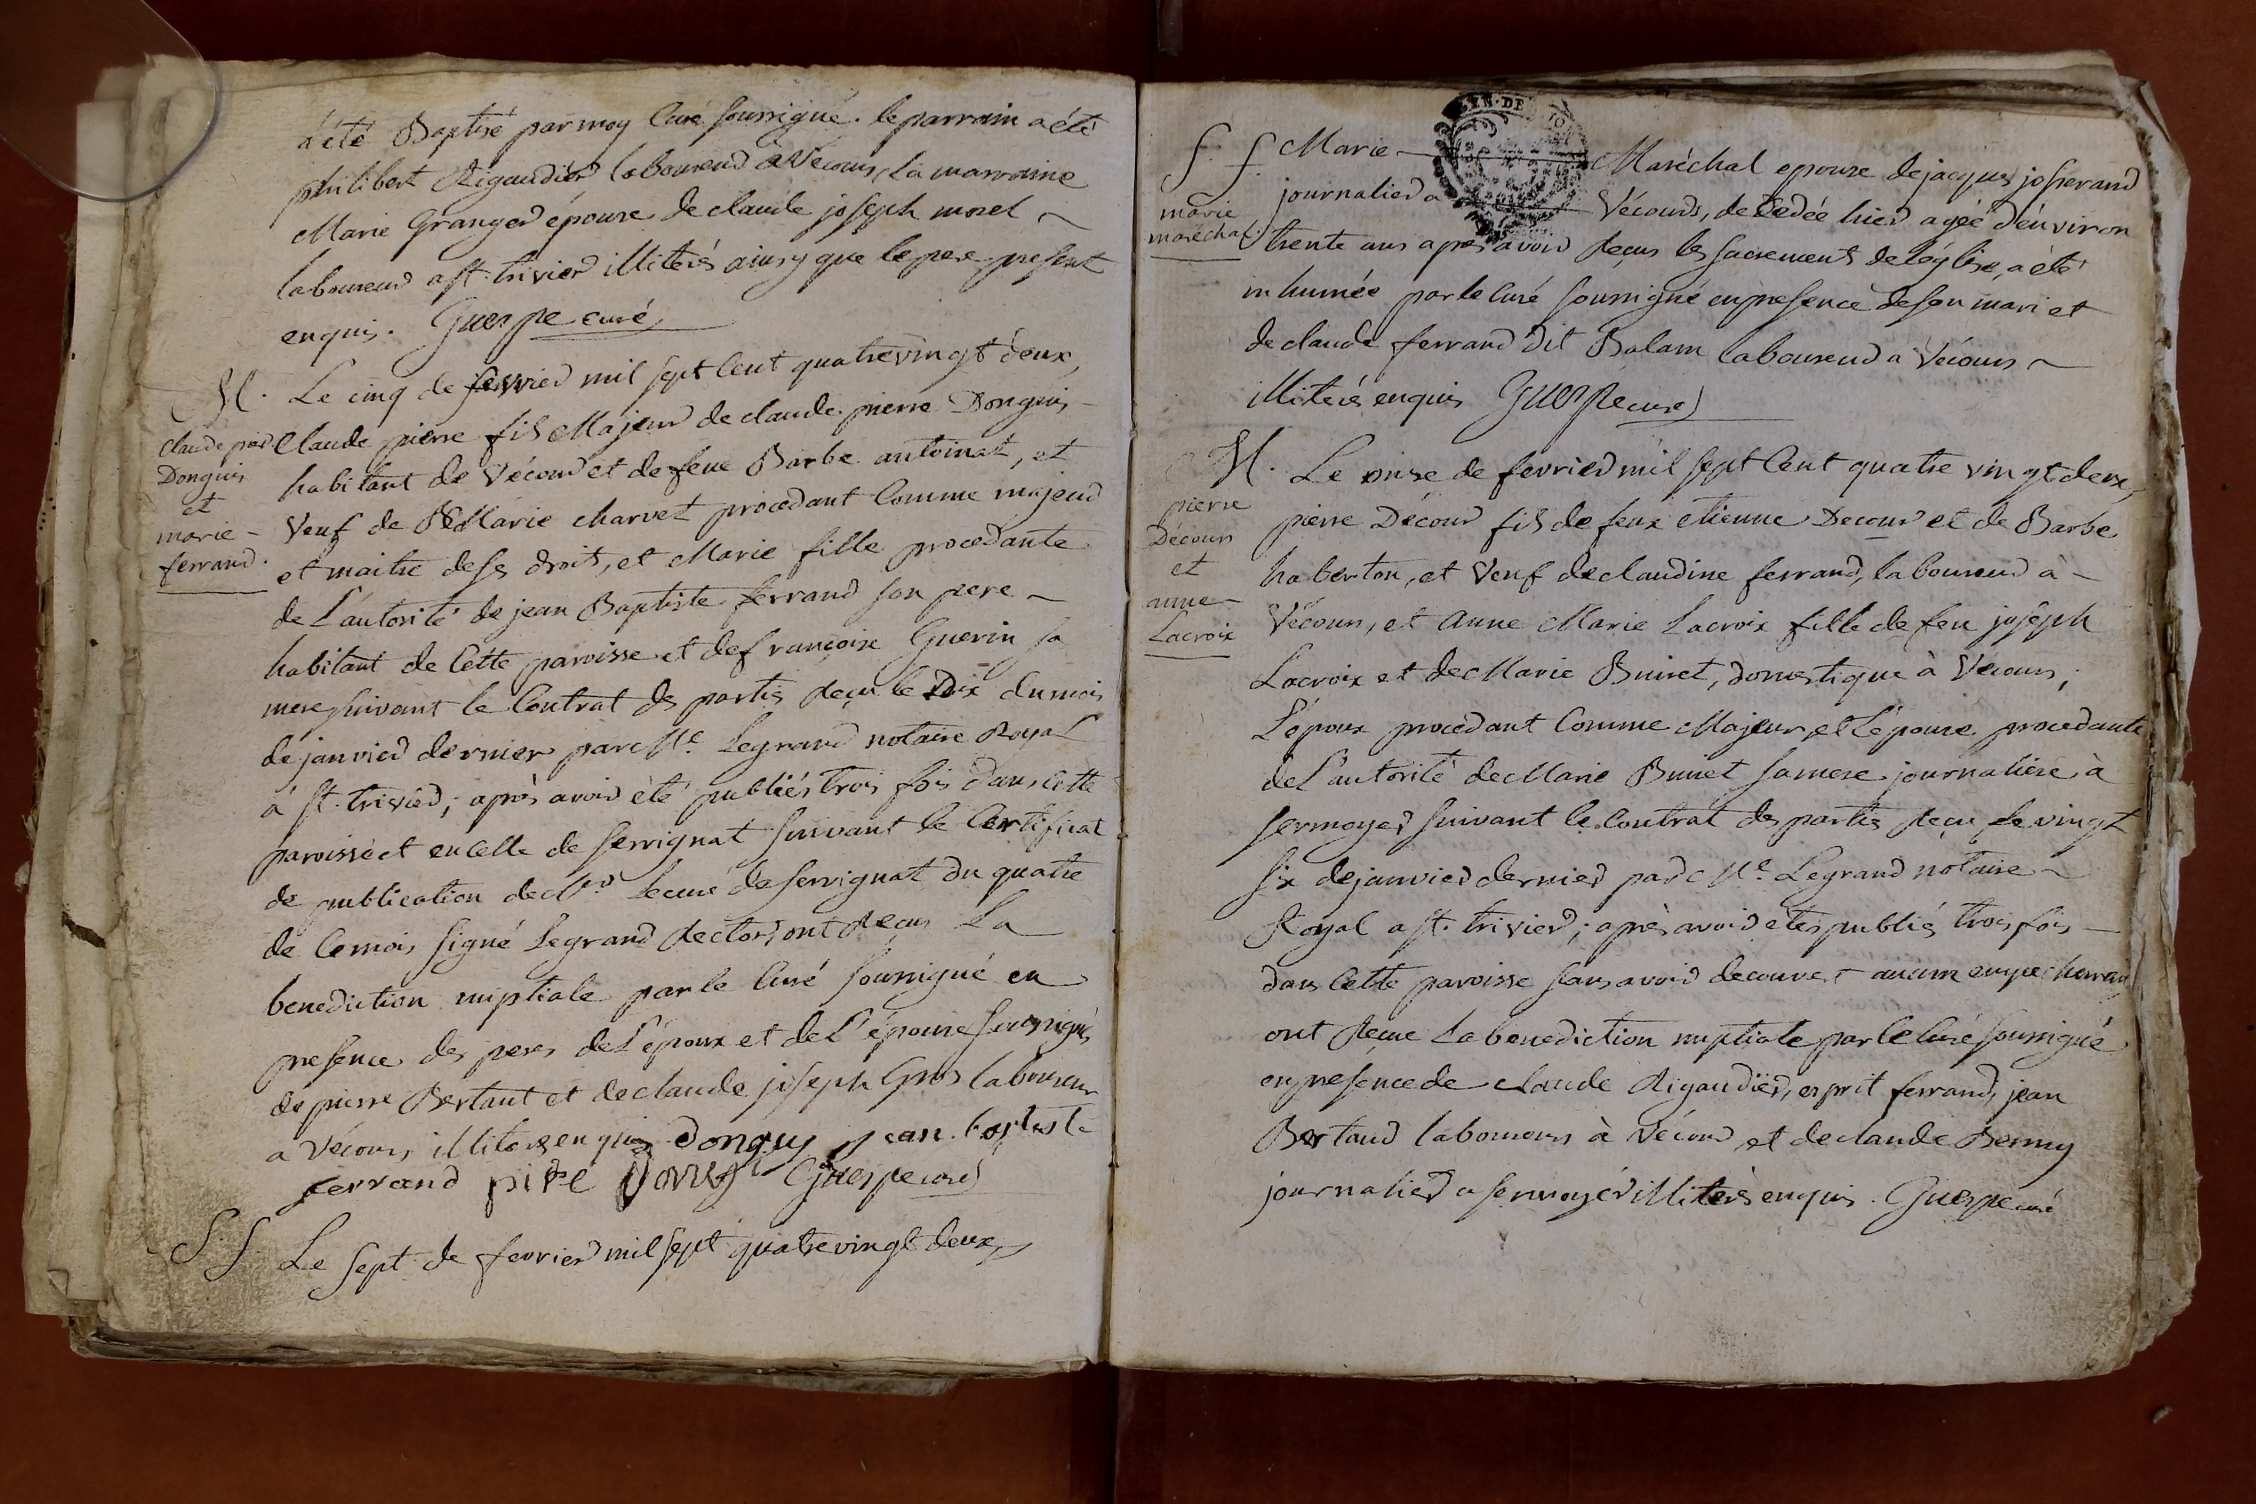 a été Baptisé par moy Curé soussigné. le parrain a été
philibert Rigaudier laboureur a Vécours, la marraine
Marie Granger épouse de claude joseph morel
laboureur a st. trivier illiterés ainsy que le pere present
enquis. Guespe curé
M. Le cinq de fevrier mil sept Cent quatrevingt deux,
claude pierre Donguis et marie ferrand.
Claude pierre fils Majeur de claude pierre Donguis
habitant de Vécour et de feue Barbe antoinat, et
Veuf de Marie charvet procedant Comme majeur
et maitre de ses droits, et Marie fille procedante
de L'autorité de jean Baptiste ferrand son pere
habitant de Cette paroisse et de françoise Guerin sa
mere suivant le Contrat des partis reçu le Dix du mois
de janvier dernier par Me. Legrand notaire Royal
à st. trivier; après avoir été publiés trois fois dans Cette
paroisse et en celle de servignat suivant le Certificat
de publication de Mr. le curé de servignat du quatre
de Ce mois signé Legrand rector, ont reçus La
benediction nuptiale par le Curé soussigné en
presence des peres de L'époux et de L'épouse soussignés
de pierre Bertaut et de claude joseph Gros laboureur
a Vécours illiterés enquis donguy jean baptiste
ferrand Guespe curé
S.S. Le sept de fevrier mil sept quatrevingt deux,
S. S. Marie Maréchal epouse de jacques josserand
marie maréchal
journalier a Vécours, decedée hier agéé d'environ
trente ans apres avoir reçus les sacrements de l'église, a été
inhumée par le Curé soussigné en presence de son mari et
de claude ferrand dit Balam laboureur a Vécours
illiterés enquis Guespe curé
M. Le onse de fevrier mil sept Cent quatre vingt deux,
pierre Décours et anne Lacroix
pierre Décour fils de feux etienne Decour et de Barbe
haberton, et Veuf de claudine ferrand, laboureur à
Vécours, et Anne Marie Lacroix fille de feu joseph
Lacroix et de Marie Buiret, domestique à Vecours,
L'époux procedant Comme Majeur, et L'épouse procedante
de L'autorité de Marie Buiret sa mere journaliere à
sermoyer suivant le Contrat des partis reçu le vingt
six de janvier dernier par Me. Legrand notaire
Royal a st. trivier; après avoir étés publiés trois fois
dans Cette paroisse sans avoir decouvert aucun empechement,
ont reçue La benediction nuptiale par le Curé soussigné
en presence de claude Rigaudier, esprit ferrand, jean
Bertaud laboureurs à Vécour et de claude Benny
journalier a sermoyer illiterés enquis. Guespe curé